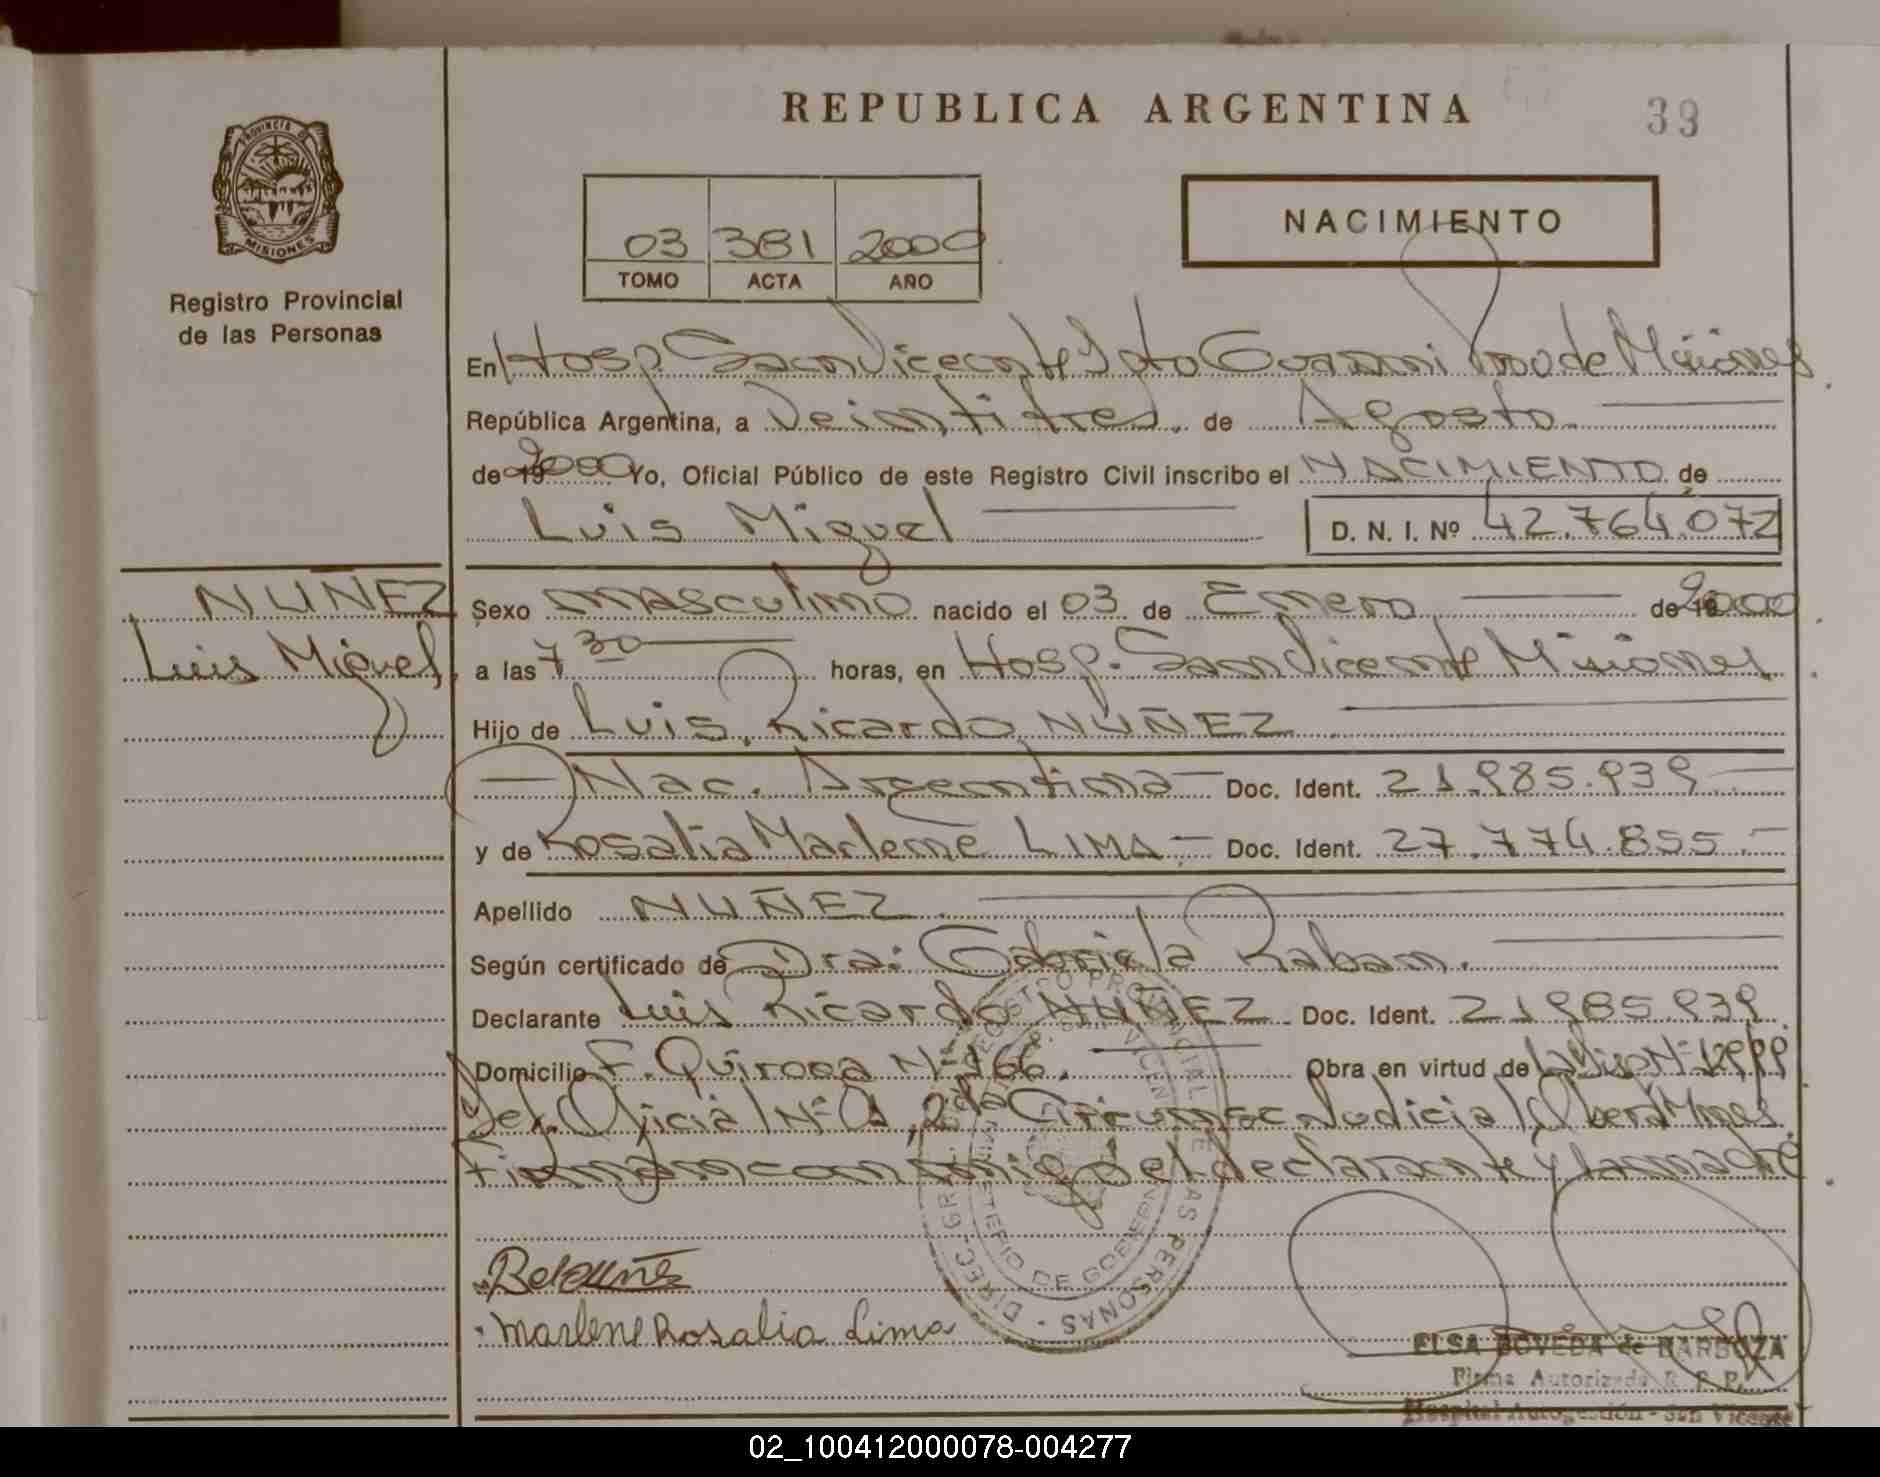 REPUBLICA ARGENTINA
39
PROVINCIA DE
MISIONES
Registro Provincial
de las Personas
03 381 2000
TOMO ACTA AÑO
NACIMIENTO
En Hosp. San Vicente Dpto Guarani Pno de Misiones
República Argentina, a Veintitres de Agosto
de 19 2000 Yo, Oficial Público de este Registro Civil inscribo el NACIMIENTO de
Luis Miguel D. N. I. Nº 42.764.072
NUÑEZ
Luis Miguel
Sexo masculino nacido el 03 de Enero de 19 2000
a las 7 30 horas, en Hosp. San Vicente Misiones
Hijo de Luis Ricardo NUÑEZ
Nac. Argentina Doc. Ident. 21.985.939
y de Rosalia Marlene LIMA Doc. Ident. 27.774.855
Apellido NUÑEZ
Según certificado de Dra: Gabriela Raban.
Declarante Luis Ricardo NUÑEZ Doc. Ident. 21985.939
Domicilio F. Quiroga Nº 166. Obra en virtud de
Def. Oficial Nº 01, 2da Circunsc Judicial Oberá Mnes
Firman conmigo el declarante y la madre
Marlene Rosalia Lima
ELSA BOVEDA de BARBOZA
Firma Autorizada R. P. P.
Hospital Autogestión - San Vicente
DIREC. GR. REGISTRO PROVINCIAL DE LAS PERSONAS
MINISTERIO DE GOBIERNO
02_100412000078-004277